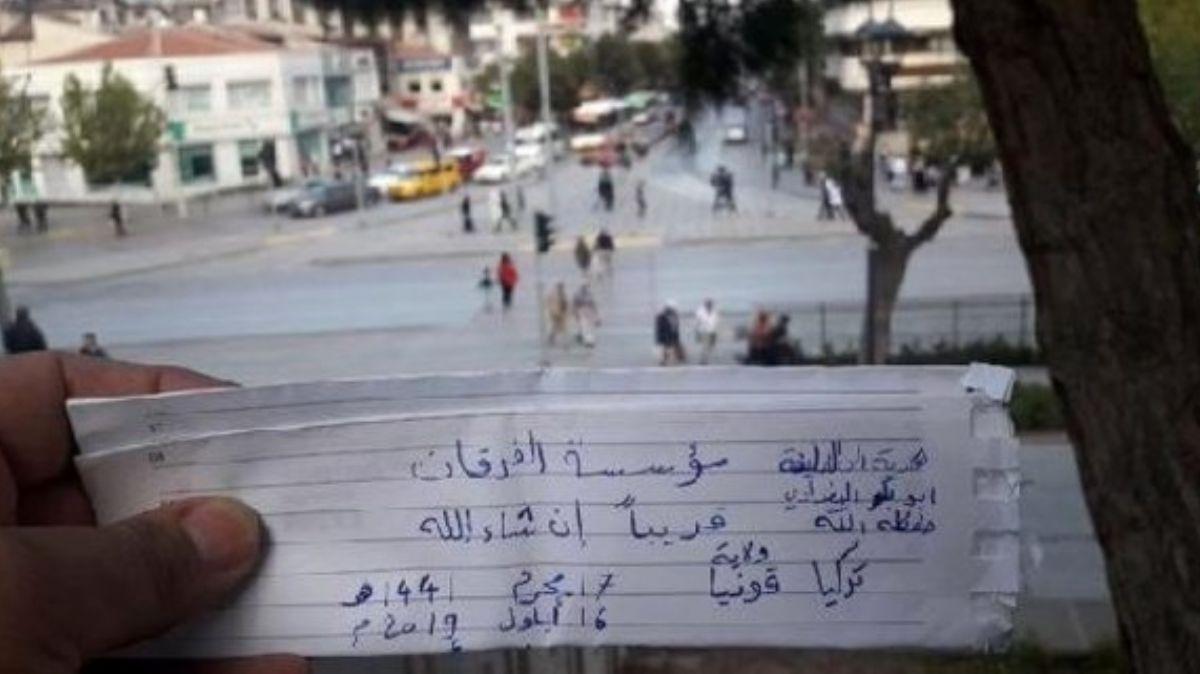 هدية الى الخليفة مؤسسة الفرقان
ابو بكر البغدادي
حفظه الله قريباً إن شاء الله
ولاية
تركيا قونيا
17 محرم 1441 هـ
16 أيلول 2019 م